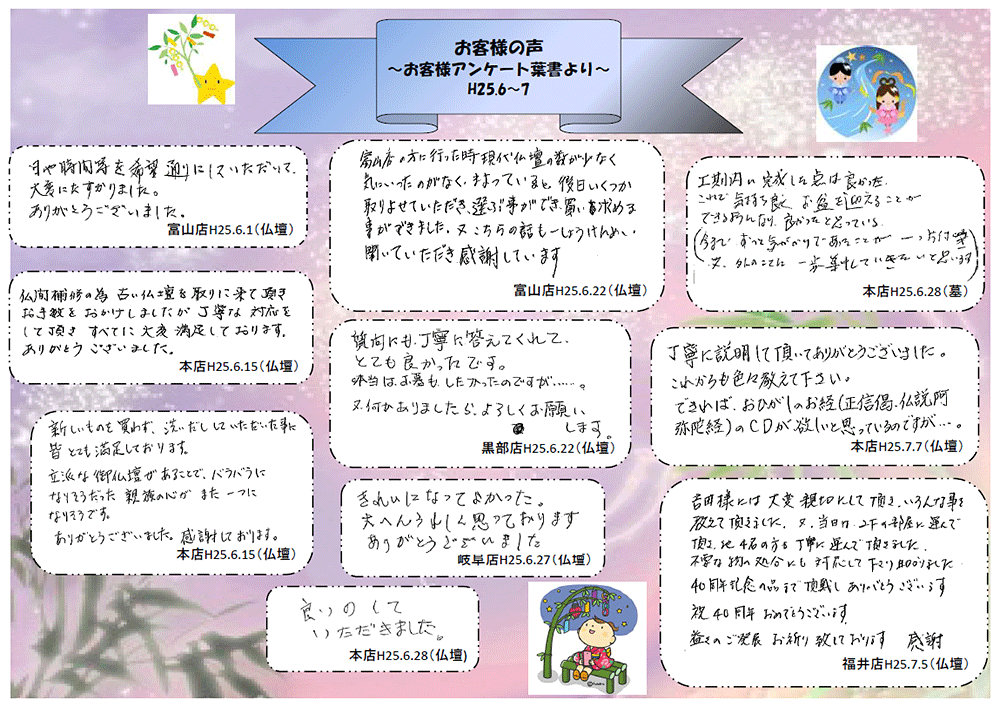 お客様の声
～お客様アンケート葉書より～
H25.6～7
日や時間等を希望通りにしていただいて、
大変にたすかりました。
ありがとうございました。
富山店H25.6.1(仏壇)
仏間補修の為 古い仏壇を取りに来て頂き
お手数をおかけしましたが丁寧な対応を
して頂き すべてに大変満足しております。
ありがとうございました。
本店H25.6.15(仏壇)
新しいものを買わず、洗いだししていただいた事に
皆とても満足しております。
立派な御仏壇があることで、バラバラに
なりそうだった 親族の心が また一つに
なりそうです。
ありがとうございました。感謝しております。
本店H25.6.15(仏壇)
富山店の方に行った時現代仏壇の数が少なく
気にいったのがなく、まよっていると、後日いくつか
取りよせていただき、選ぶ事ができ、買い求める
事ができました。又こちらの話も一しょうけんめい
聞いていただき感謝しています
富山店H25.6.22(仏壇)
質問にも、丁寧に答えてくれて、
とても良かったです。
本当はお墓も、したかったのですが……。
又何かありましたら、よろしくお願い
します。
黒部店H25.6.22(仏壇)
きれいになってよかった。
大へんうれしく思っております
ありがとうございました
岐阜店H25.6.27(仏壇)
良いのして
いただきました。
本店H25.6.28(仏壇)
工期内に完成した点は良かった。
これで気持ち良く お盆を迎えることが
できるようになり、良かったと思っている。
(今まで ずっと気がかりであったことが 一つ片付き
又、次のことに 一歩 していきたいと思います)
本店H25.6.28(墓)
丁寧に説明して頂いてありがとうございました。
これからも色々教えて下さい。
できれば、おひがしのお経(正信偈、仏説阿
弥陀経)のCDが欲しいと思っているのですが…。
本店H25.7.7(仏壇)
吉田様には 大変 親切にして頂き、いろんな事を
教えて頂きました。又、当日は、2Fの部屋に運んで
頂き、他4名の方も丁寧に運んで頂きました。
不要な物の処分にも 対応して下さり助かりました
40周年記念の品まで頂戴しありがとうございます
祝40周年 おめでとうございます
益々のご発展 お祈り致しております 感謝
福井店H25.7.5(仏壇)